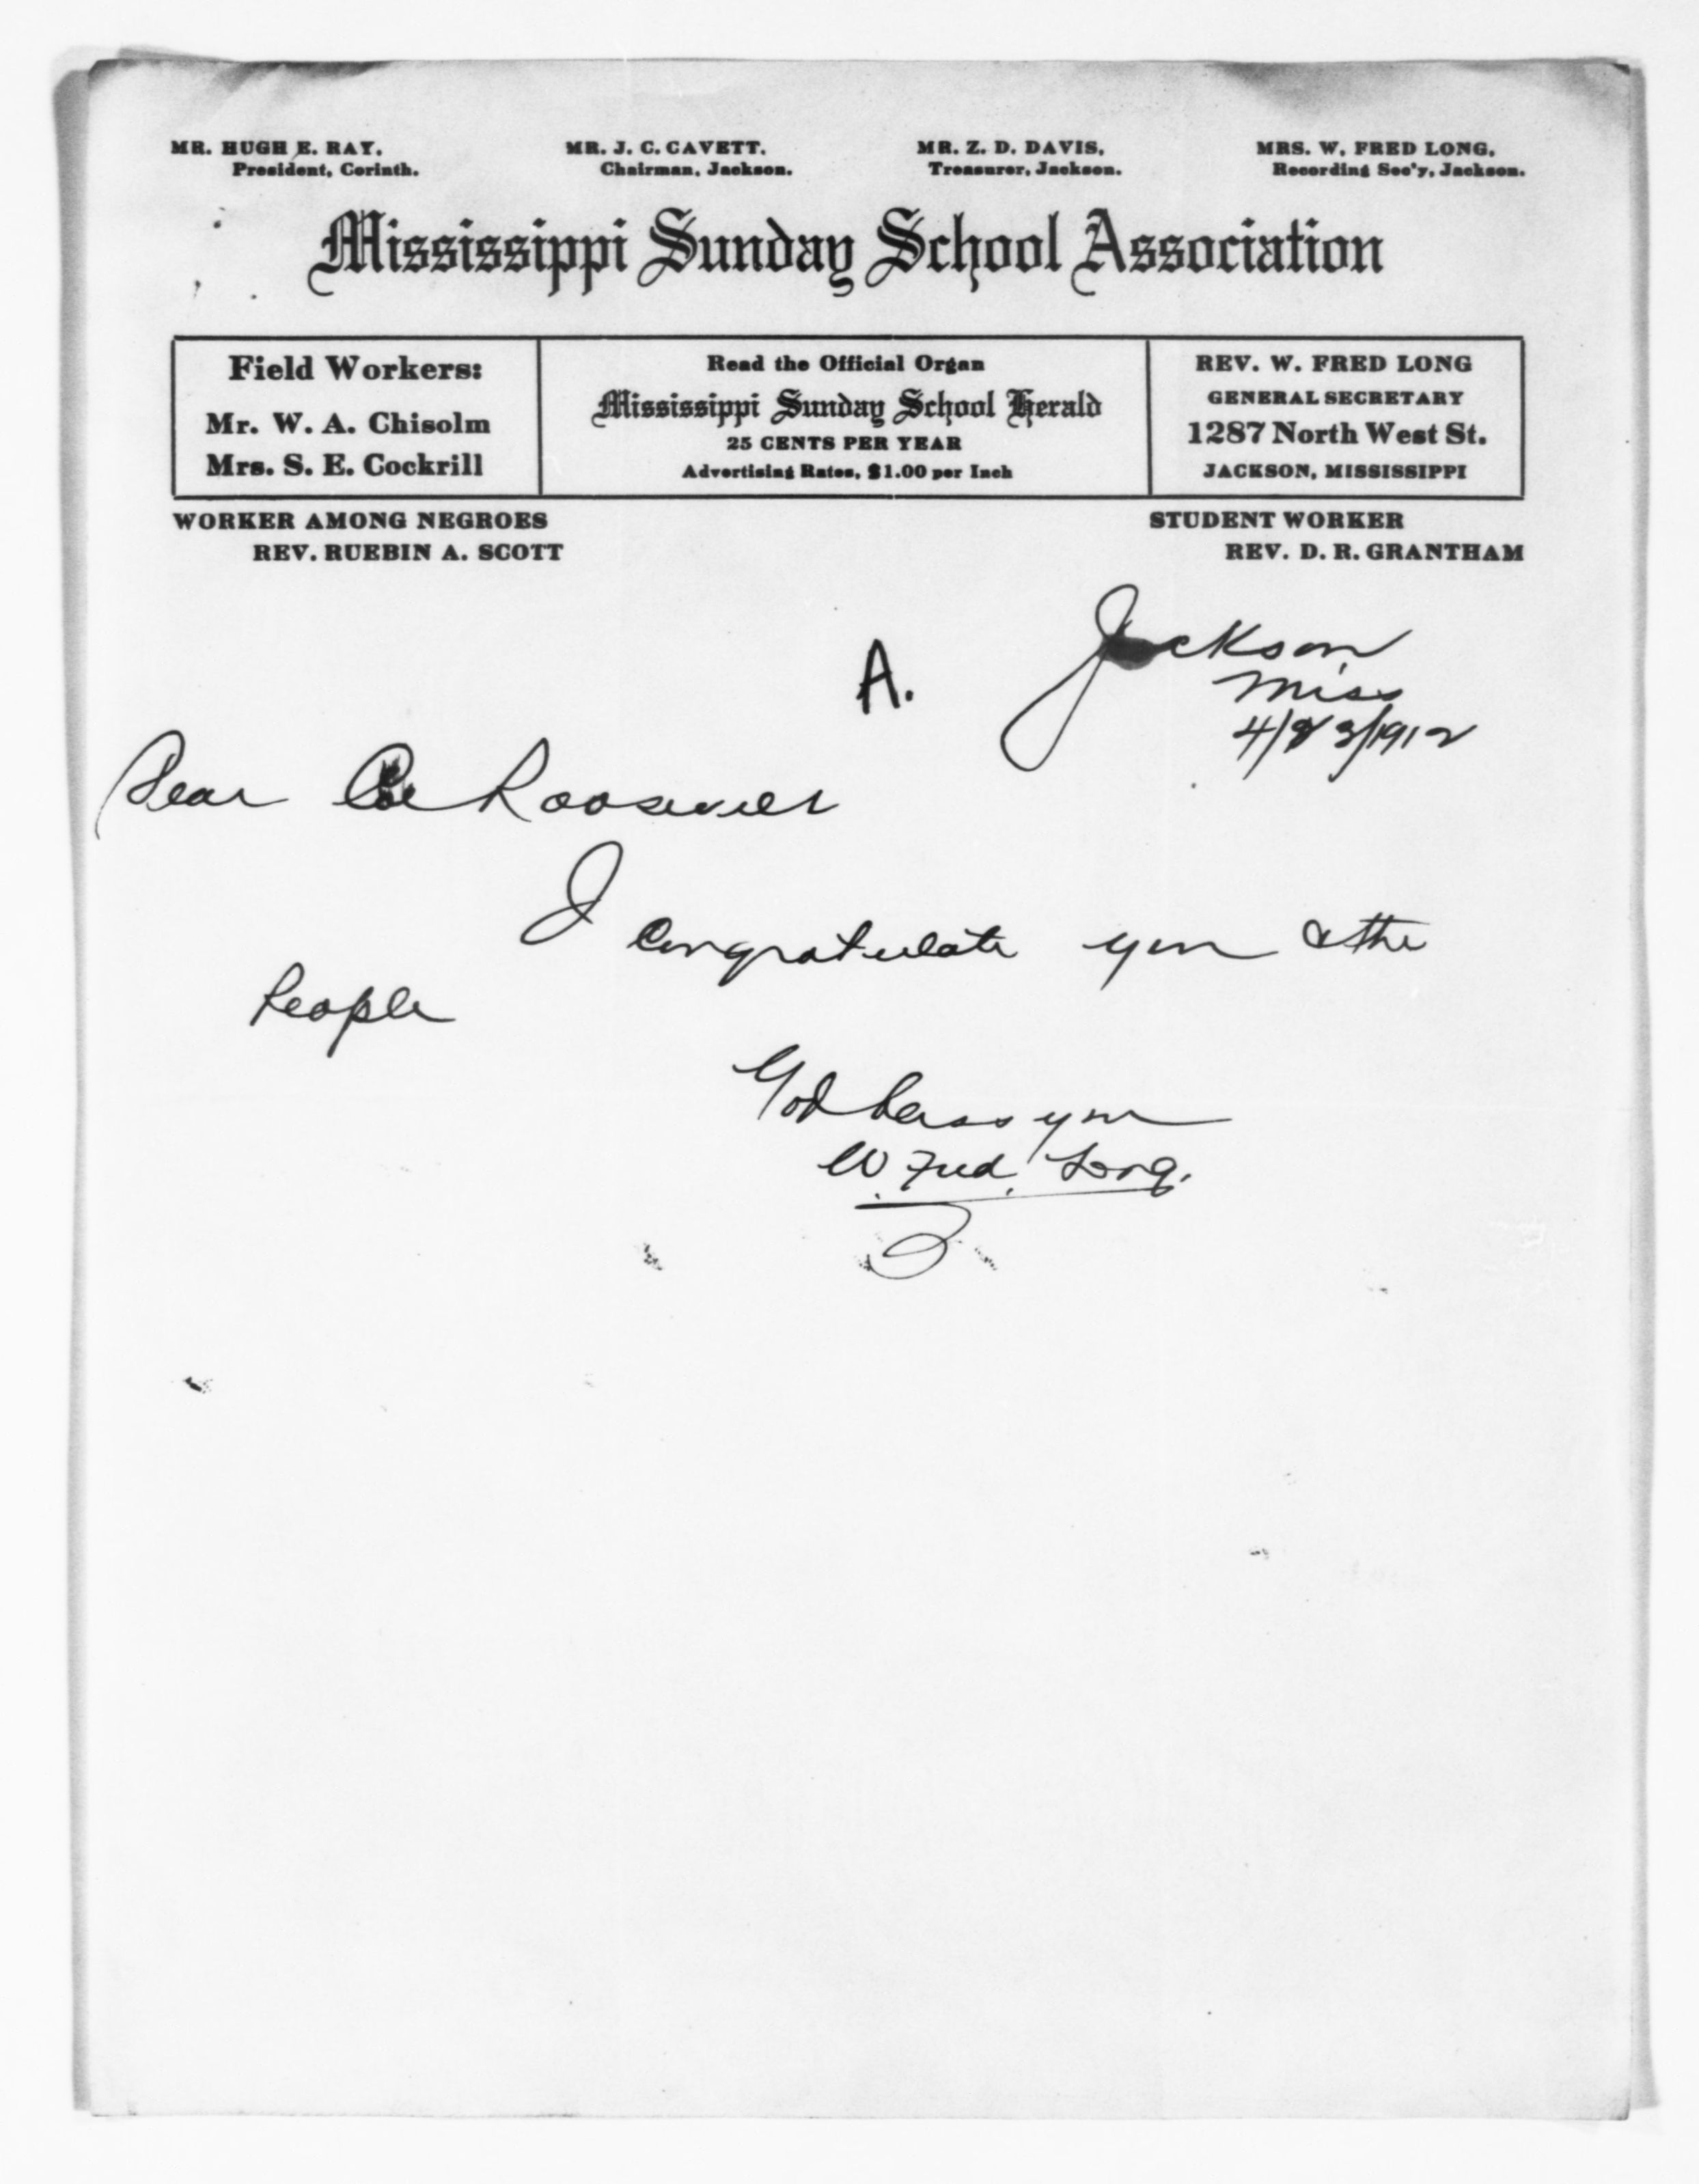 MR. HUGH E. RAY,
President, Corinth.
MR. J. C. CAVETT,
Chairman, Jackson.
MR. Z. D. DAVIS,
Treasurer, Jackson.
MRS. W. FRED LONG,
Recording Sec'y, Jackson.
Mississippi Sunday School Association
Field Workers:
Mr. W. A. Chisolm
Mrs. S. E. Cockrill
Read the Official Organ
Mississippi Sunday School Herald
25 CENTS PER YEAR
Advertising Rates, $1.00 per Inch
REV. W. FRED LONG
GENERAL SECRETARY
1287 North West St.
JACKSON, MISSISSIPPI
WORKER AMONG NEGROES
REV. RUEBIN A. SCOTT
STUDENT WORKER
REV. D. R. GRANTHAM
A.
Jackson,
Miss
4/23/1912
Dear Col Roosevelt
I congratulate you & the
People
God bless you
W. Fred. Long.